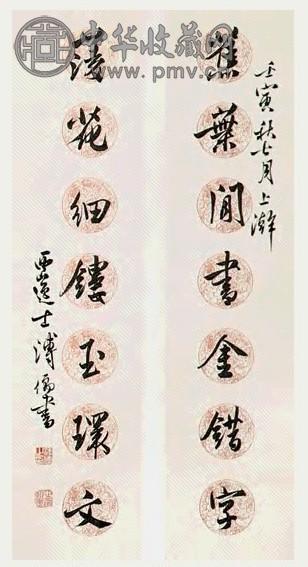 中华收藏网
www.pmv.cn
壬寅秋七月上澣
蕉葉閒書金錯字
蔆花細鏤玉環文
西山逸士溥儒書